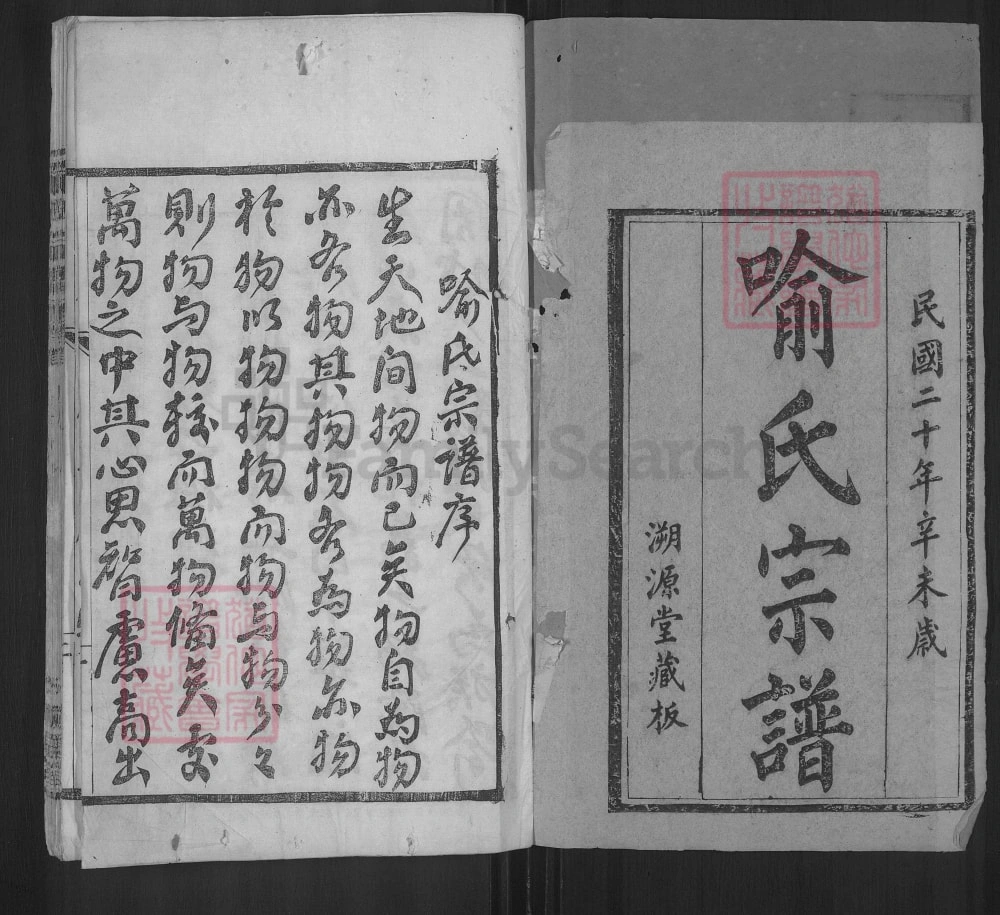 民國二十年辛未歲
喻氏宗譜
溯源堂藏板
喻氏宗譜序
生天地间物而已矣物自為物
亦各物其物物各為物亦物
於物以物物物物而物与物分々
則物与物較而萬物備矣交
萬物之中其心思智慮高出
FamilySearch